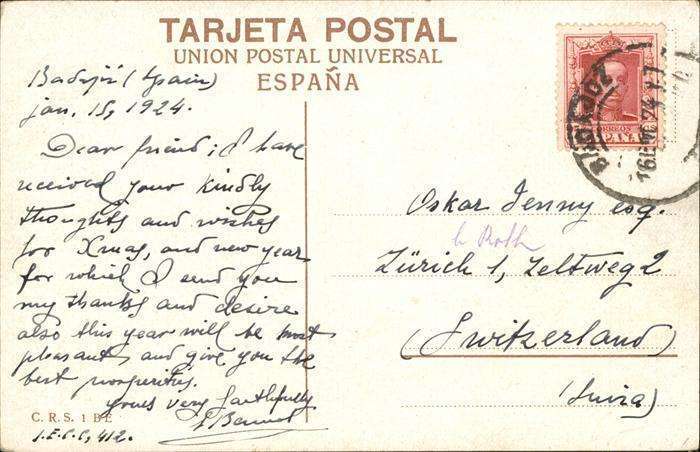 TARJETA POSTAL
UNION POSTAL UNIVERSAL
ESPAÑA
Badajoz (Spain)
Jan. 15, 1924.
Dear friend; I have
received your kindly
thoughts and wishes
for Xmas, and new year
for which I send you
my thanks and desire
also this year will be most
pleasant and give you the
best prosperities.
yours very faithfully
C. R. S. 1 BE
I.E.C.C, 412.
BADAJOZ
CORREOS
Oskar Jenny esq.
b Roth
Zürich 1, Zeltweg 2
(Switzerland)
(Suiza)